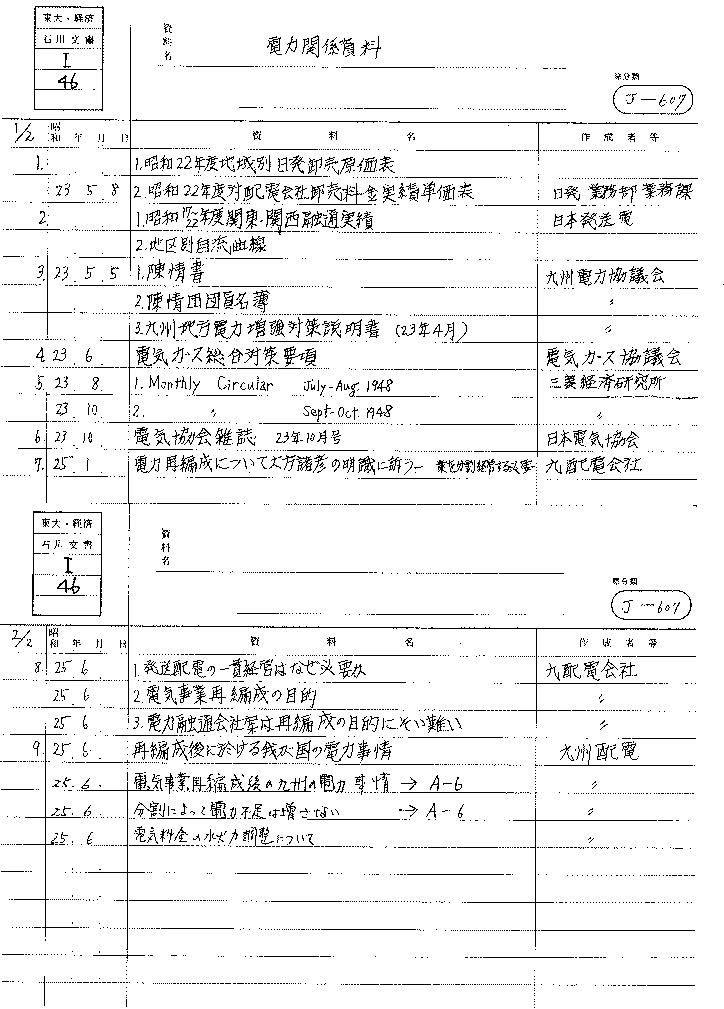 東大・経済
石川文書
I
46
資料名 電力関係資料
原分類
J-607
1/2 昭和 年 月 日 資 料 名 作成者等
1. 1.昭和22年度地域別日発卸売原価表
23 5 8 2.昭和22年度対配電会社卸売料金実績単価表 日発 業務部業務課
2. 1.昭和 22年度関東・関西融通実績 日本発送電
2.地区別自流曲線
3. 23 5 5 1.陳情書 九州電力協議会
2.陳情団団員名簿 〃
3.九州地方電力増強対策説明書 (23年4月) 〃
4. 23 6 電気ガス総合対策要項 電気ガス協議会
5. 23 8 1. Monthly Circular July-Aug. 1948 三菱経済研究所
23 10 2. 〃 Sept-Oct. 1948 〃
6. 23 10 電気協会雑誌 23年10月号 日本電気協会
7. 25 1 電力再編成について大方諸彦の明識に訴う- 九配電会社
東大・経済
石川文書
I
46
資料名
原分類
J-607
2/2 昭和 年 月 日 資 料 名 作成者等
8. 25 6 1.発送配電の一貫経営はなぜ必要か 九配電会社
25 6 2.電気事業再編成の目的 〃
25 6 3.電力融通会社案は再編成の目的にそい難い 〃
9. 25 6 再編成後に於ける我が国の電力事情 九州配電
25. 6. 電気事業再編成後の九州の電力事情 → A-6 〃
25. 6 分割によって電力不足は増さない → A-6 〃
25. 6 電気料金の水火力調整について 〃